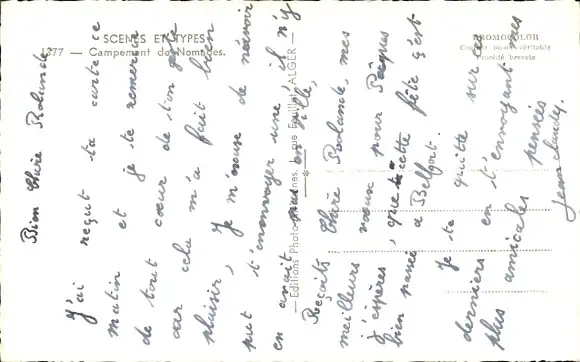 SCENES ET TYPES
1377 — Campement de Nomades.
— Editions Photo-
ALGER —
PROMOCOLOR
Procédé breveté
Bien Chère Rolande
J'ai reçut ta carte ce
matin et je te remercie
de tout cœur de ton
car cela m'a fait bien
plaisir, Je m'excuse de n'avoir
put t'en envoyer une, il n'y
en avait pas en ville,
Reçoits Chère Rolande, mes
meilleurs vœux pour Pâques
j'espères, que cette fête c'est
bien passé a Belfort.
Je te quitte sur ces
derniers en t'envoyant mes
plus amicales pensées
Jean claude